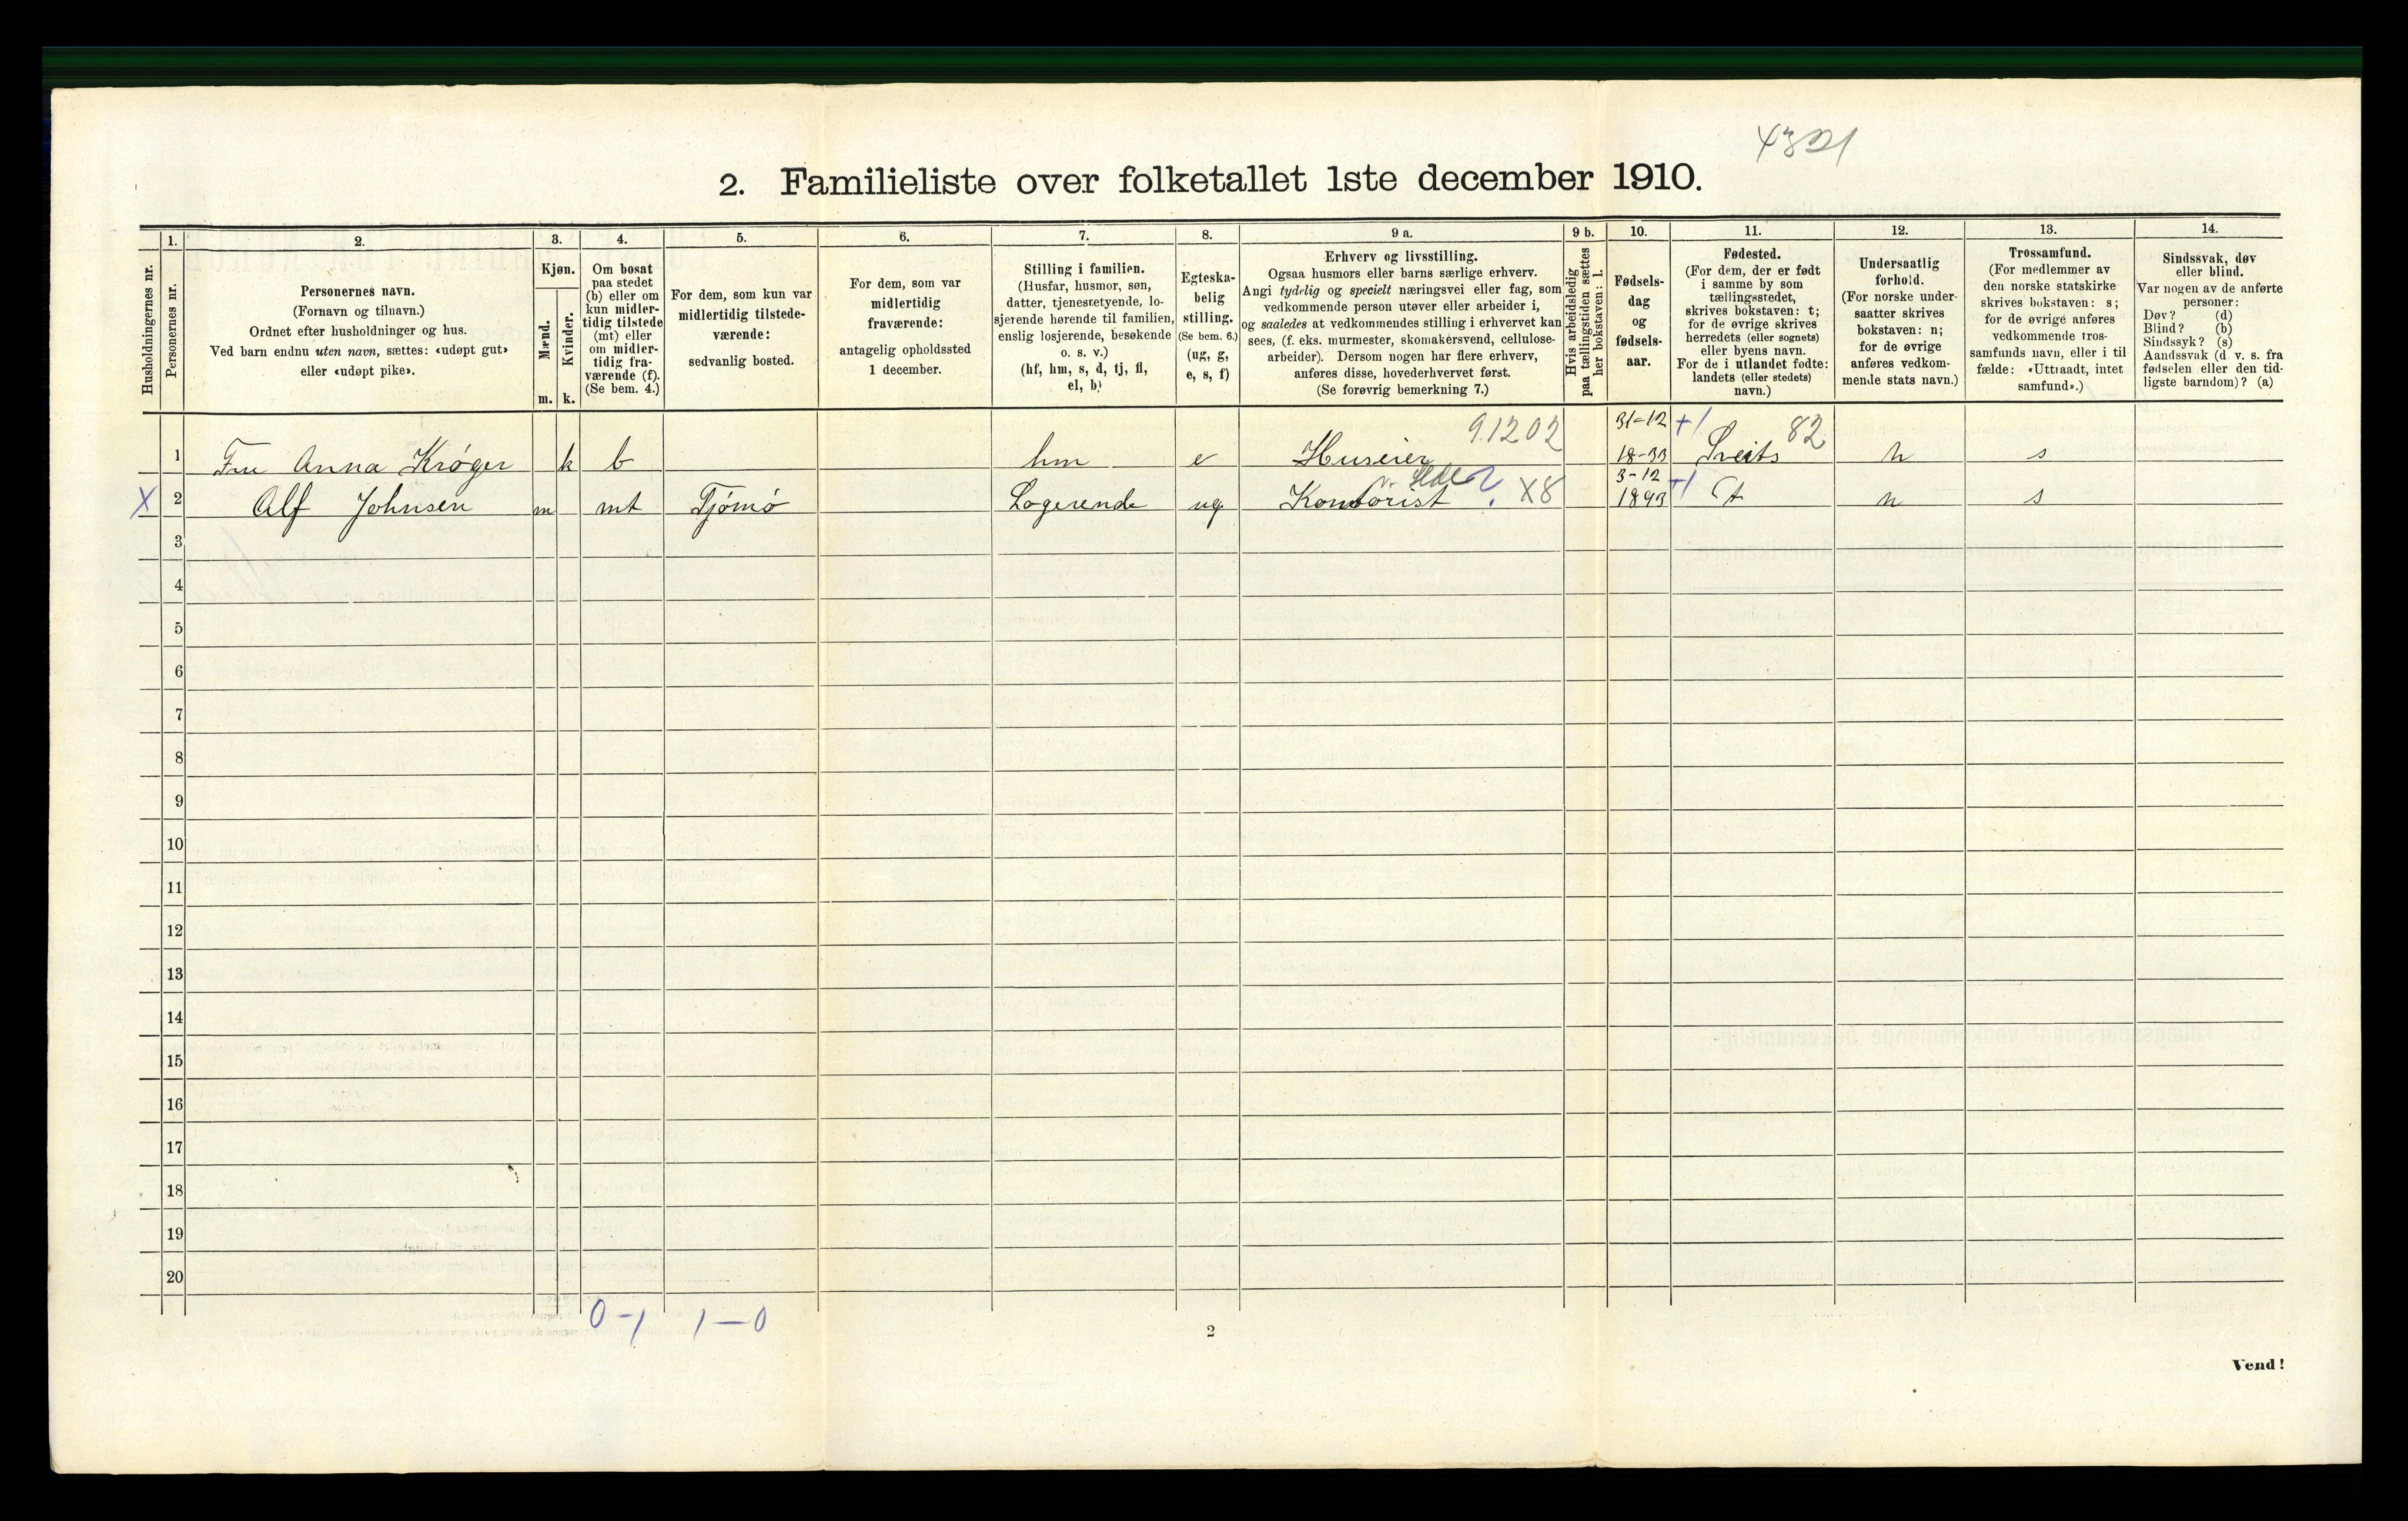 4321
2. Familieliste over folketallet 1ste december 1910.
Husholdningernes nr.
1.
Personernes nr.
2.
Personernes navn.
(Fornavn og tilnavn.)
Ordnet efter husholdninger og hus.
Ved barn endnu uten navn, sættes: «udøpt gut»
eller «udøpt pike».
3.
Kjøn.
Mænd.
m.
Kvinder.
k.
4.
Om bosat
paa stedet
(b) eller om
kun midler-
tidig tilstede
(mt) eller
om midler-
tidig fra-
værende (f).
(Se bem. 4.)
5.
For dem, som kun var
midlertidig tilstede-
værende:
sedvanlig bosted.
6.
For dem, som var
midlertidig
fraværende:
antagelig opholdssted
1 december.
7.
Stilling i familien.
(Husfar, husmor, søn,
datter, tjenestetyende, lo-
sjerende hørende til familien,
enslig losjerende, besøkende
o. s. v.)
(hf, hm, s, d, tj, fl,
el, b)
8.
Egteska-
belig
stilling.
(Se bem. 6.)
(ug, g,
e, s, f)
9 a.
Erhverv og livsstilling.
Ogsaa husmors eller barns særlige erhverv.
Angi tydelig og specielt næringsvei eller fag, som
vedkommende person utøver eller arbeider i,
og saaledes at vedkommendes stilling i erhvervet kan
sees, (f. eks. murmester, skomakersvend, cellulose-
arbeider). Dersom nogen har flere erhverv,
anføres disse, hovederhvervet først.
(Se forøvrig bemerkning 7.)
9 b.
Hvis arbeidsledig
paa tællingstiden sættes
her bokstaven: l.
10.
Fødsels-
dag
og
fødsels-
aar.
11.
Fødested.
(For dem, der er født
i samme by som
tællingsstedet,
skrives bokstaven: t;
for de øvrige skrives
herredets (eller sognets)
eller byens navn.
For de i utlandet fødte:
landets (eller stedets)
navn.)
12.
Undersaatlig
forhold.
(For norske under-
saatter skrives
bokstaven: n;
for de øvrige
anføres vedkom-
mende stats navn.)
13.
Trossamfund.
(For medlemmer av
den norske statskirke
skrives bokstaven: s;
for de øvrige anføres
vedkommende tros-
samfunds navn, eller i til
fælde: «Uttraadt, intet
samfund».)
14.
Sindssvak, døv
eller blind.
Var nogen av de anførte
personer:
Døv? (d)
Blind? (b)
Sindssyk? (s)
Aandssvak (d. v. s. fra
fødselen eller den tid-
ligste barndom)? (a)
1 Fru Anna Krøger k b hm e Huseier 91202 31-12 18-33 +1 Sveits 82 n s
X 2 Alf Johnsen m mt Tjømø Logerende ug Kontorist X8 3-12 1893 +1 t n s
3
4
5
6
7
8
9
10
11
12
13
14
15
16
17
18
19
20
0-1 1-0
2
Vend!